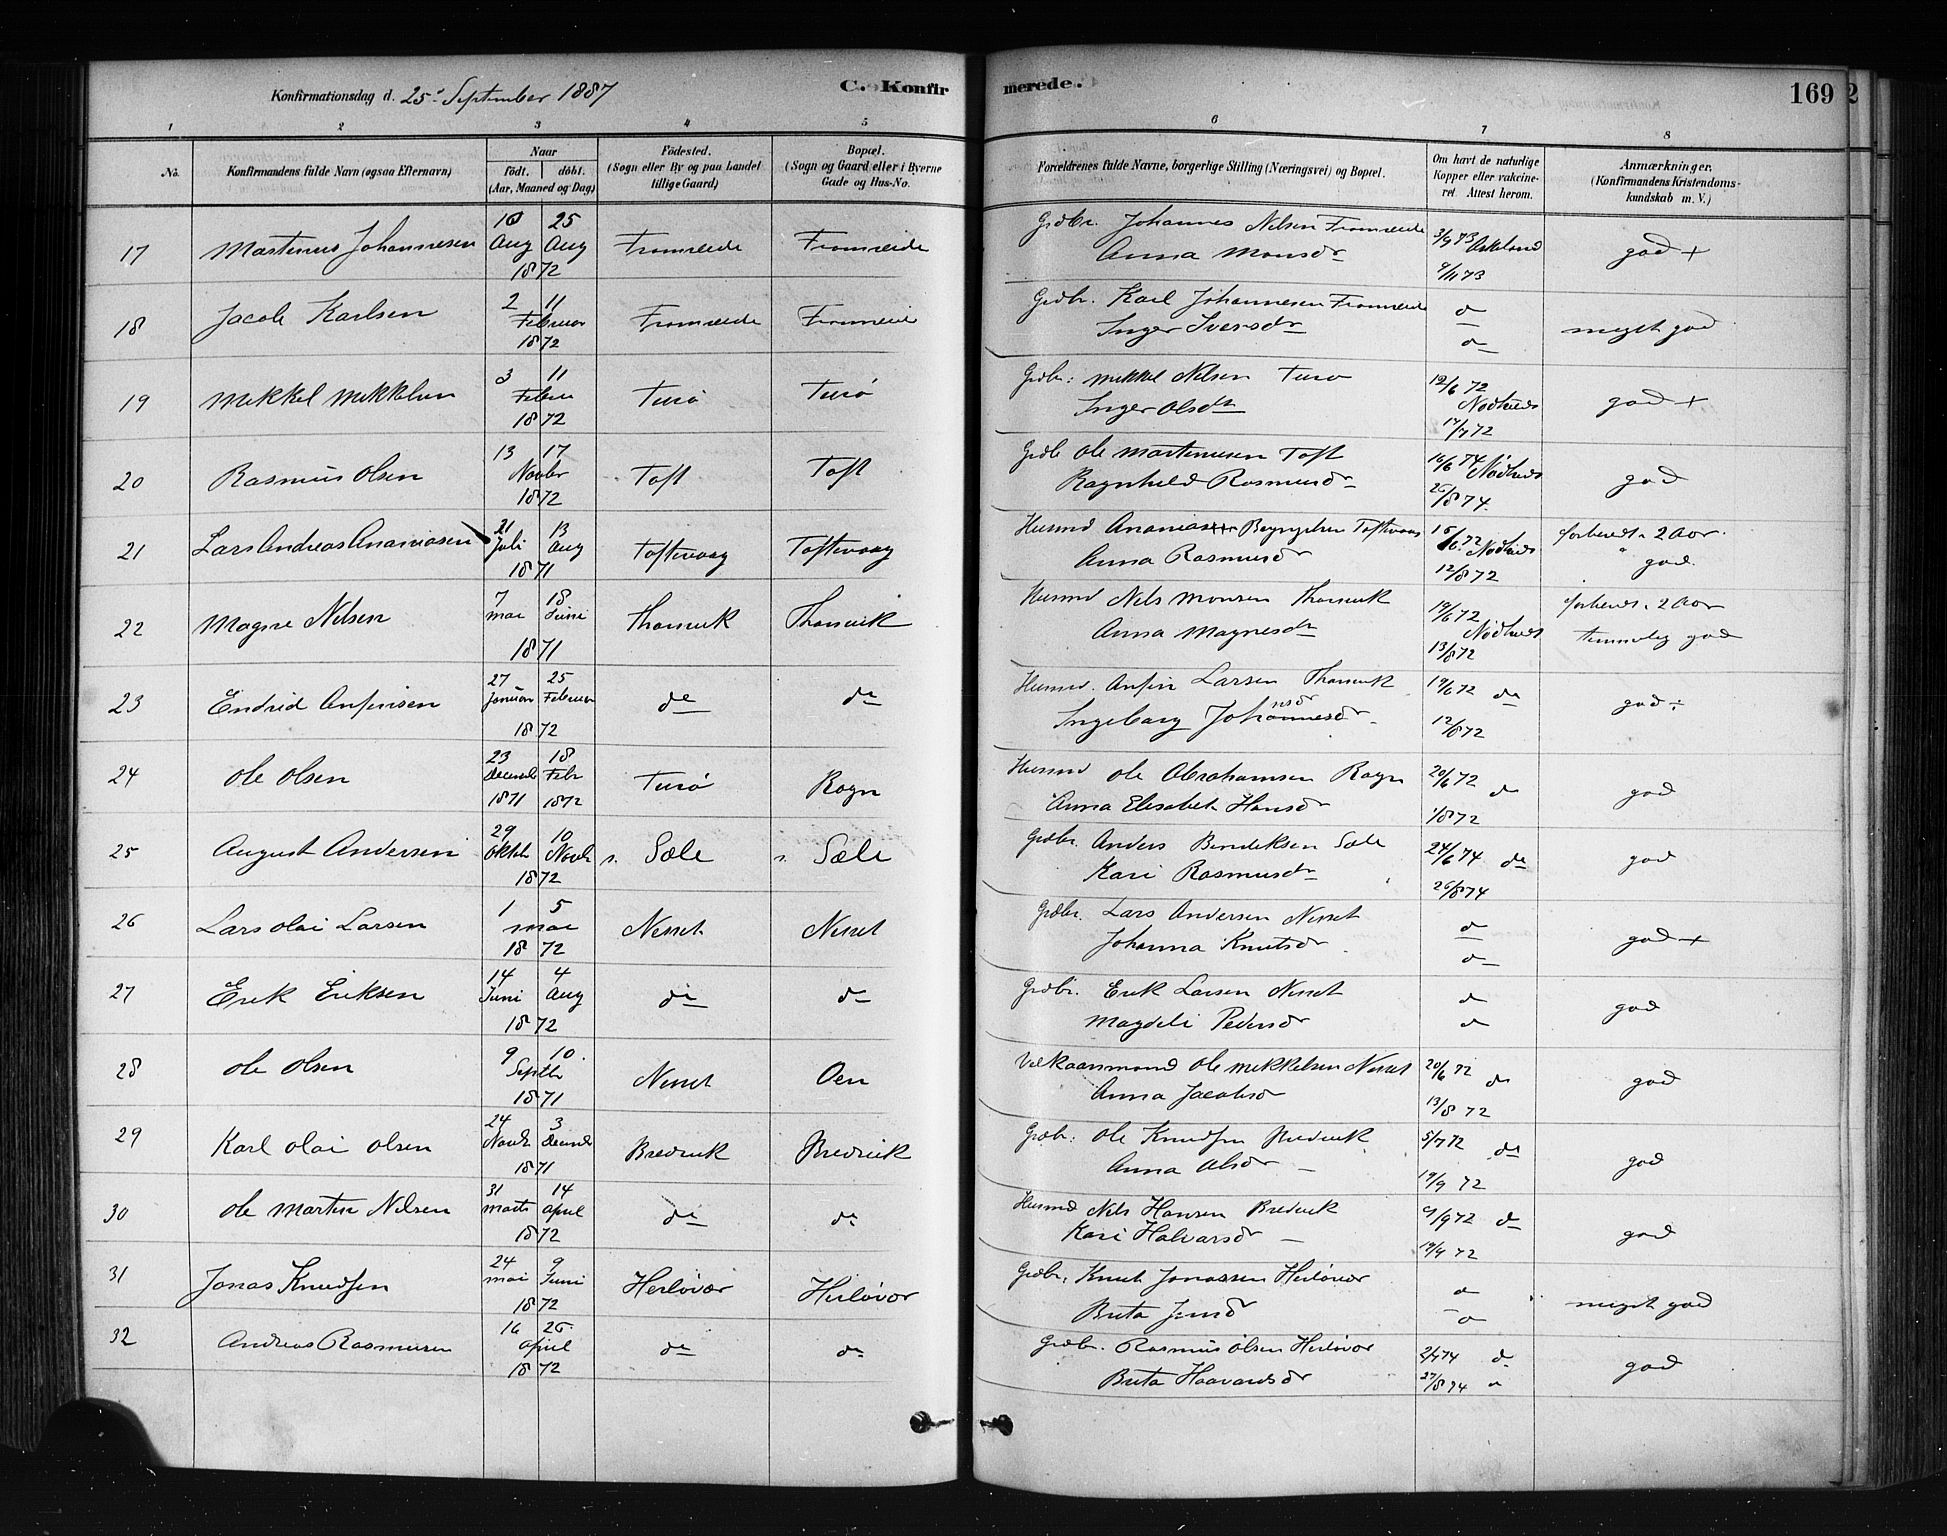 Konfirmationsdag d. 25' September 1887 C. Konfirmerede. 169
1 2 3 4 5 6 7 8
No. Konfirmandens fulde Navn (ogsaa Efternavn) Naar födt. döbt. (Aar, Maaned og Dag) Födested. (Sogn eller By og paa Landet tillige Gaard) Bopæl. (Sogn og Gaard eller i Byerne Gade og Hus-No. Forældrenes fulde Navne, borgerlige Stilling (Næringsvei) og Bopæl. Om havt de naturlige Kopper eller vakcineret. Attest herom. Anmærkninger. (Konfirmandens Kristendomskundskab m. V.)
17 Martinus Johannesen 10 Aug 25 Aug 1872 Fromreide Fromreide Grdbr. Johannes Nilsen Fromreide 3/9 73 Askeland god +
Anna Monsdr 9/11 73
18 Jacob Karlsen 2 11 Februar 1872 Fromreide Fromreide Grdbr. Karl Johannesen Fromreide do meget god
Inger Iversdr do
19 Mikkel Mikkelsen 3 11 Febru 1872 Turö Turö Grdbr: Mikkel Nilsen Turö 12/6 72 god +
Inger Olsdtr 17/7 72
20 Rasmus Olsen 13 17 Novbr 1872 Toft Toft Grdb Ole Martinusen Toft 16/6 74 god
Ragnhild Rasmusdr 26/8 74.
21 Lars Andreas Ananiasen 21 Juli 13 Aug 1871 Toftevaag Toftevaag Husmd Ananias Toftevaag 15/6 72 forberedt i 2 Aar.
Anna Rasmusdr 12/8 72 god.
22 Magne Nilsen 7 Mai 18 Juni 1871 Thorsvik Thorsvik Husmd Nils Monsen Thorsvik 19/6 72 forberedt i 2 Aar
Anna Magnesdtr 13/8 72 temmelig god
23 Endrid Anfinsen 27 Januar 25 Februar 1872 do do Husmd. Anfin Larsen Thorsvik 19/6 72 do god ÷
Ingeborg Johannesdr 12/8 72
24 Ole Olsen 23 Decemb 1871 18 Febr 1872 Turö Rogn Husmd Ole Abrahamsen Rogn 20/6 72 do god
Anna Elisabet Hansdr 1/8 72
25 August Andersen 29 Oktob 10 Novb 1872 s. Sæle s. Sæle Grdbr Anders Bendiksen Sæle 24/6 74 do god
Kari Rasmusdtr 26/8 74
26 Lars Olai Larsen 1 5 Mai 1872 Nesset Nesset Grdbr. Lars Andersen Nesset do god +
Johanna Knutsdr do
27 Erik Eriksen 14 Juni 4 Aug 1872 do do Grdbr. Erik Larsen Nesset do god
Magdeli Pedersdr do
28 Ole Olsen 9 10. Septbr 1871 Nesset Oen Vilkaarsmand Ole Mikkelsen Nesset 20/6 72 do god
Anna Jacobsdr 13/8 72
29 Karl Olai Olsen 24 Novb 3 Decemb 1871 Bredvik Bredvik Grdbr: Ole Knudsen Bredvik 5/7 72 do god
Anna Olsdr 19/9 72
30 Ole Martin Nilsen 31 Marts 14 April 1872 do do Husmd Nils Hansen Bredvik 9/9 72 do god
Kari Halvarsdr 19/9 72
31 Jonas Knudsen 24 Mai 9 Juni 1872 Herlövær Herlövær Grdbr. Knut Jonassen Herlövær do meget god
Brita Jensdr do
32 Andreas Rasmusen 16 26 April 1872 do do Grdbr. Rasmus Olsen Herlövær 2/7 74 do god
Brita Haavardsdr 27/8 74